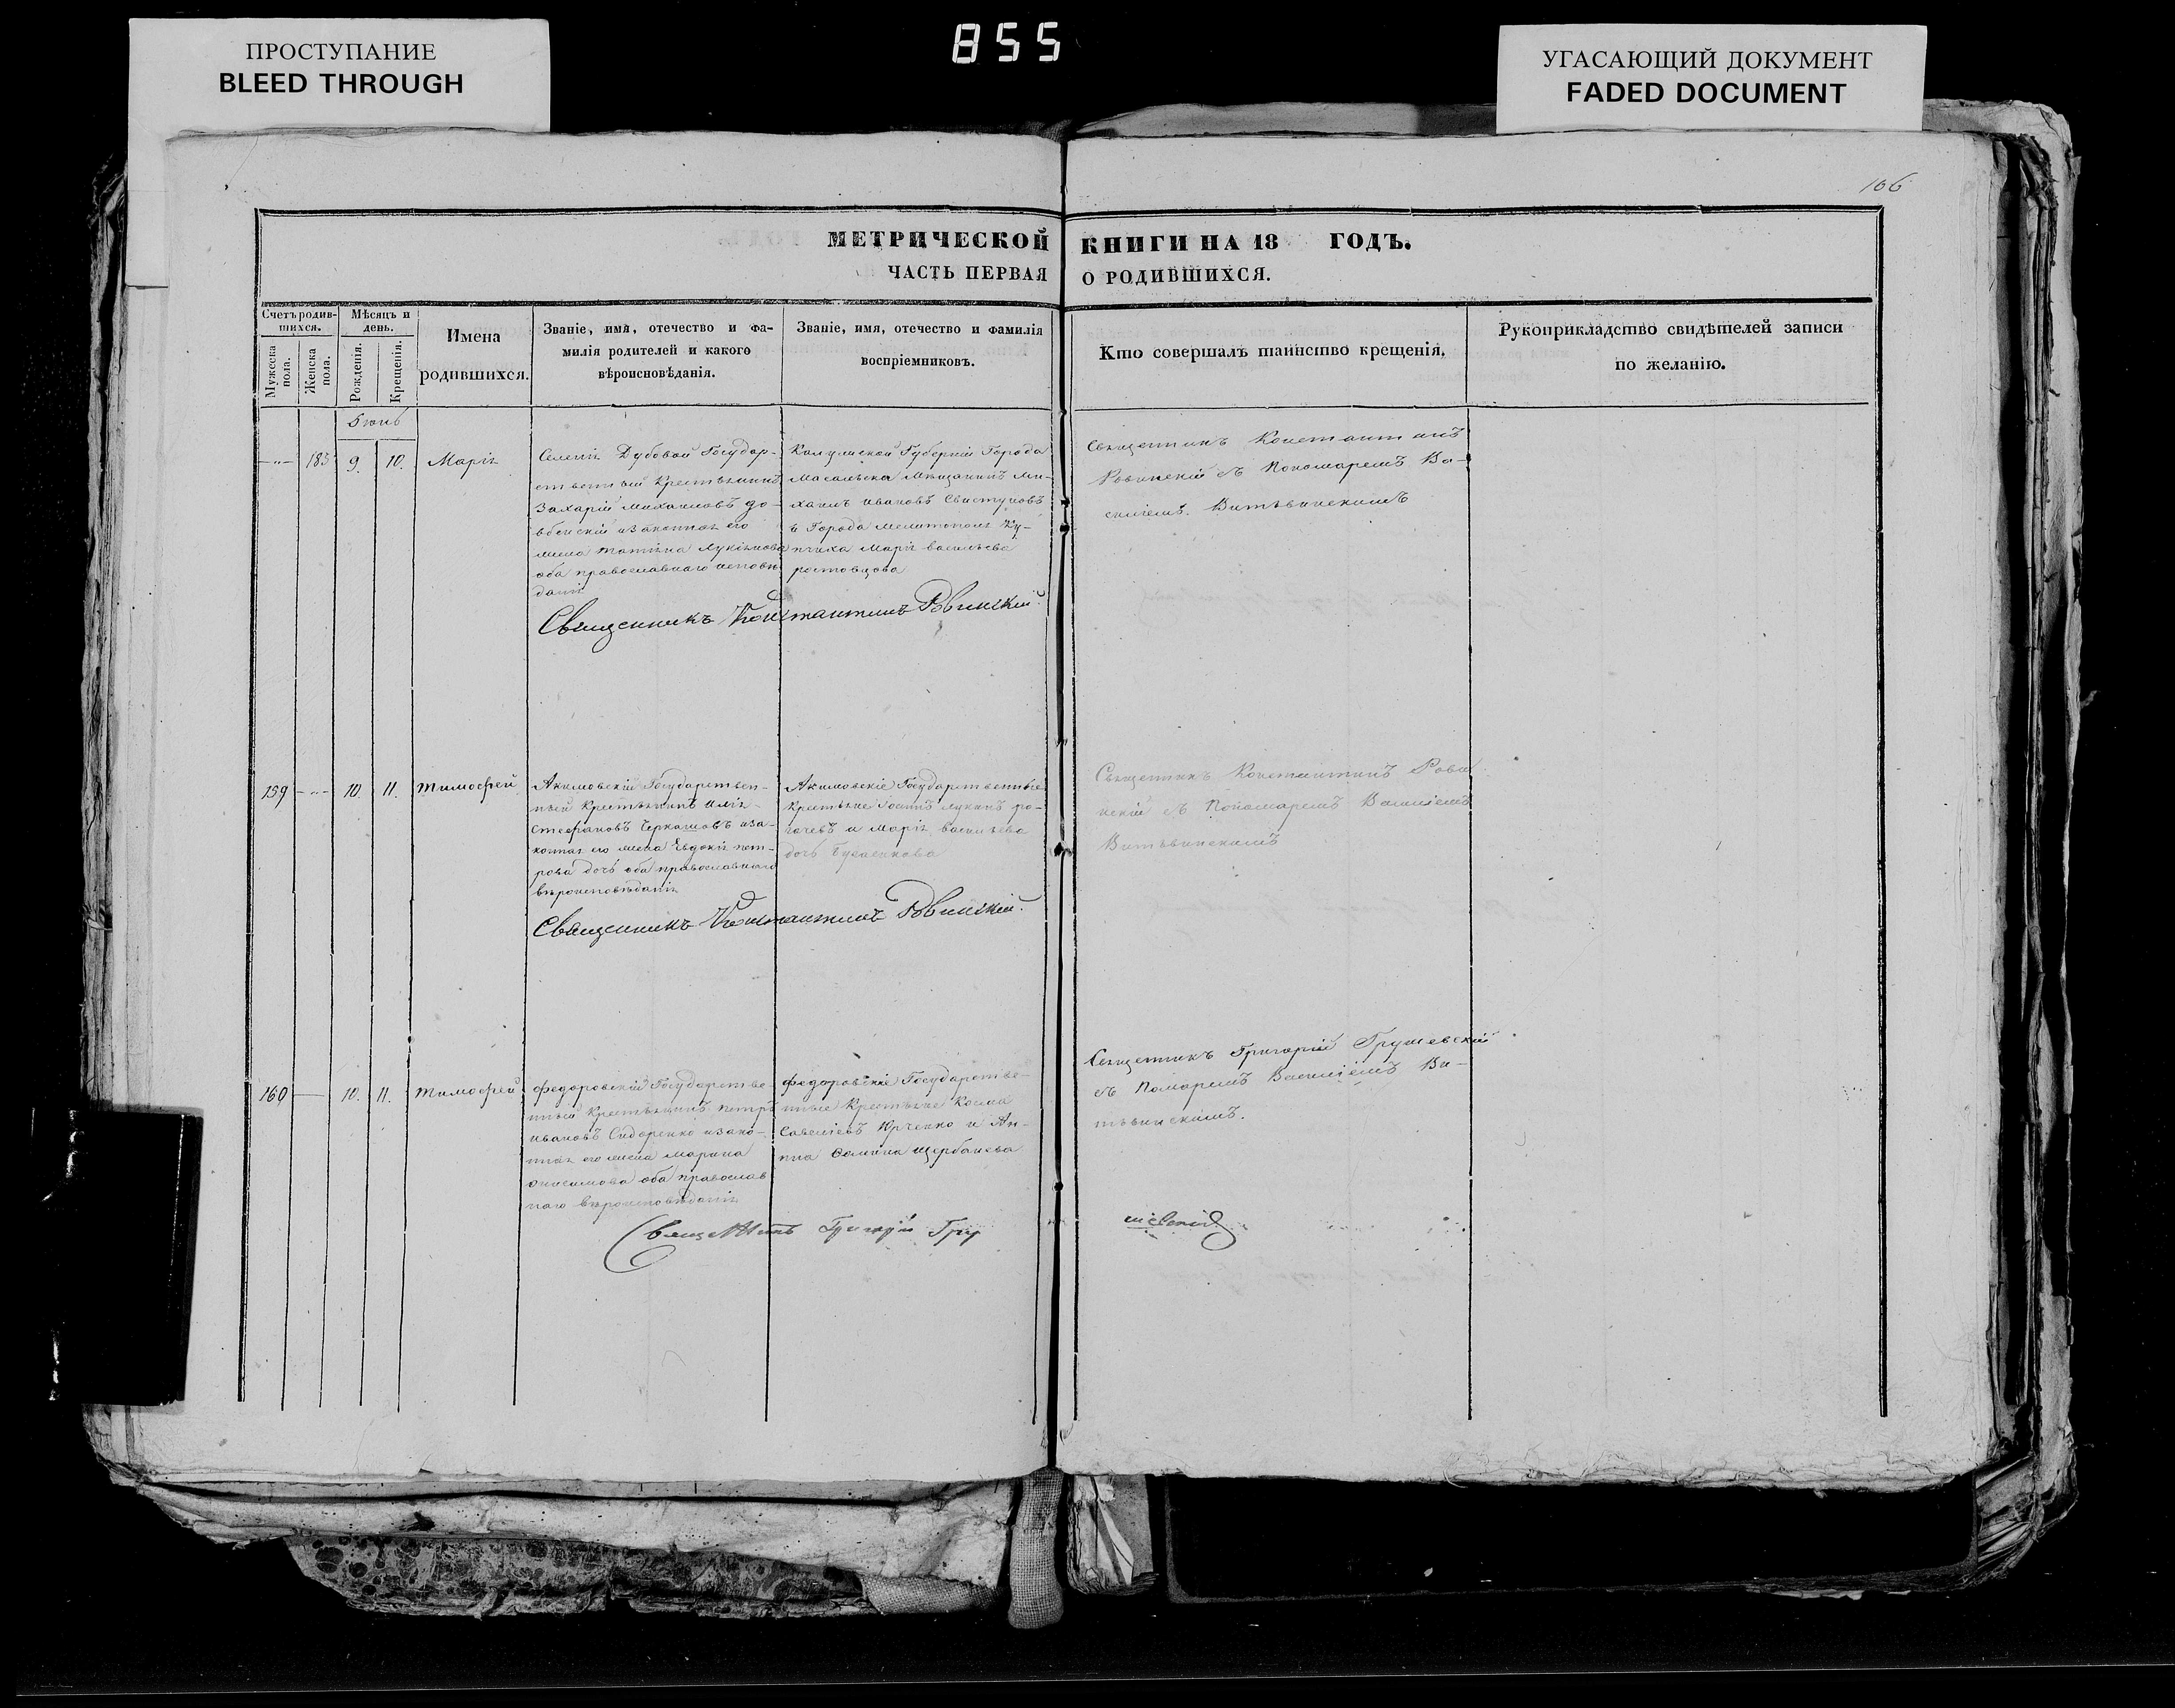 ПРОСТУПАНИЕ
BLEED THROUGH
855
УГАСАЮЩИЙ ДОКУМЕНТ
FADED DOCUMENT
166
МЕТРИЧЕСКОЙ КНИГИ НА 18 ГОДЪ.
ЧАСТЬ ПЕРВАЯ О РОДИВШИХСЯ.
Счетъ родив-
шихся.
Мужеска
пола.
Женска
пола.
Мѣсяцъ и
день.
Рожденія.
Крещенія.
Имена
родившихся.
Званіе, имя, отечество и фа-
милія родителей и какого
вѣроисновѣданія.
Званіе, имя, отечество и фамилія
воспріемниковъ.
Кто совершалъ таинство крещенія.
Рукоприкладство свидѣтелей записи
по желанію.
Іюнь
183
9.
10.
Марія
Селенія Дубовой Государ-
ственный Крестьянинъ
Захарій Михаиловъ
изаконная его
жена Татіяна Лукіянова
оба православнаго исповѣ
данія
Калужской Губерніи Города
Масальска Мѣщанинъ Ми-
хаилъ Ивановъ Свистуновъ
и Города Мелитополя Ку-
пчиха Марія Васильева
Ростовцова
Священникъ Константинъ
Ровинскій съ Пономаремъ Ва-
силіемъ Витвинскимъ
Священникъ Константинъ Ровинскій.
159
10.
11.
Тимофей
Акимовскій Государствен-
ный Крестьянинъ Илія
Стефановъ Черкашовъ иза-
конная его жена Евдокія Пет-
рова дочь оба православнаго
вѣроисповѣданія
Акимовскіе Государственные
Крестьяне Іоаннъ Лукинъ Ро-
гачевъ и Марія Васильева
дочь
Священникъ Константинъ Рови
нскій съ Пономаремъ Василіемъ
Витвинскимъ
Священникъ Константинъ Ровинскій.
160
10.
11.
Тимофей
Федоровскій Государстве
нный Крестьянинъ Петръ
Ивановъ Сидоренко изако-
нная его жена Марина
Онисимова оба православ
наго вѣроисповѣданія
Федоровскіе Государстве-
нные Крестьяне Косма
Савеліевъ Юрченко и Ан-
на Фомина Щербанева
Священникъ Григорій Грушевскій
съ Помаремъ Василіемъ Ви-
твинскимъ.
Священникъ Григорій Гру
шевскій